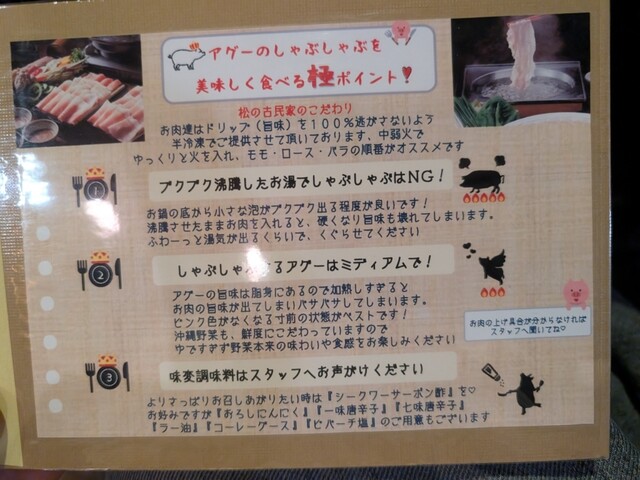 アグーのしゃぶしゃぶを
美味しく食べる極ポイント!
松の古民家のこだわり
お肉達はドリップ(旨味)を100%逃がさないよう
半冷凍でご提供させて頂いております、中弱火で
ゆっくりと火を入れ、モモ・ロース・バラの順番がオススメです
1
ブクブク沸騰したお湯でしゃぶしゃぶはNG!
お鍋の底から小さな泡がプクプク出る程度が良いです!
沸騰させたままお肉を入れると、硬くなり旨味も壊れてしまいます。
ふわーっと湯気が出るくらいで、くぐらせてください
2
しゃぶしゃぶするアグーはミディアムで!
アグーの旨味は脂身にあるので加熱しすぎると
お肉の旨味が出てしまいパサパサしてしまいます。
ピンク色がなくなる寸前の状態がベストです!
沖縄野菜も、鮮度にこだわっていますので
ゆですぎず野菜本来の味わいや食感をお楽しみください
お肉の上げ具合が分からなければ
スタッフへ聞いてね♡
3
味変調味料はスタッフへお声がけください
よりさっぱりお召しあがりたい時は『シークワーサーポン酢』を♡
お好みですが『おろしにんにく』『一味唐辛子』『七味唐辛子』
『ラー油』『コーレーグース』『ピパーチ塩』のご用意もございます